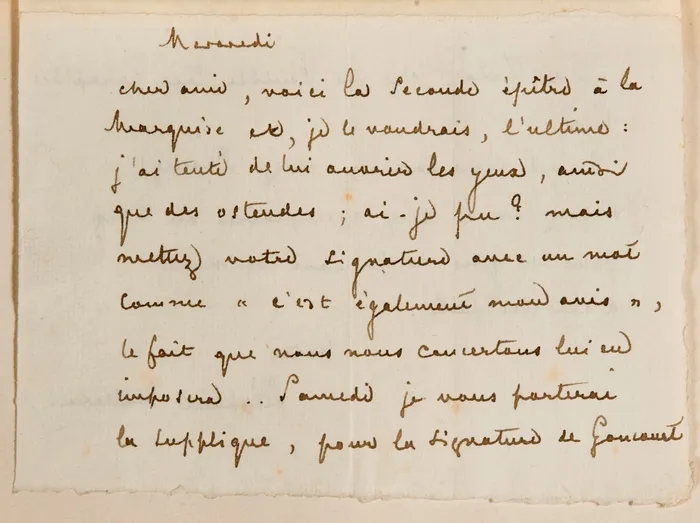 Mercredi
cher ami, voici la seconde épître à la
Marquise et, je le voudrais, l'ultime :
j'ai tenté de lui ouvrir les yeux, ainsi
que des ostendes ; ai-je pu ? mais
mettez votre signature avec un mot
comme « c'est également mon avis »,
le fait que nous nous concertons lui en
imposera .. Samedi je vous porterai
la supplique, pour la signature de Goncourt